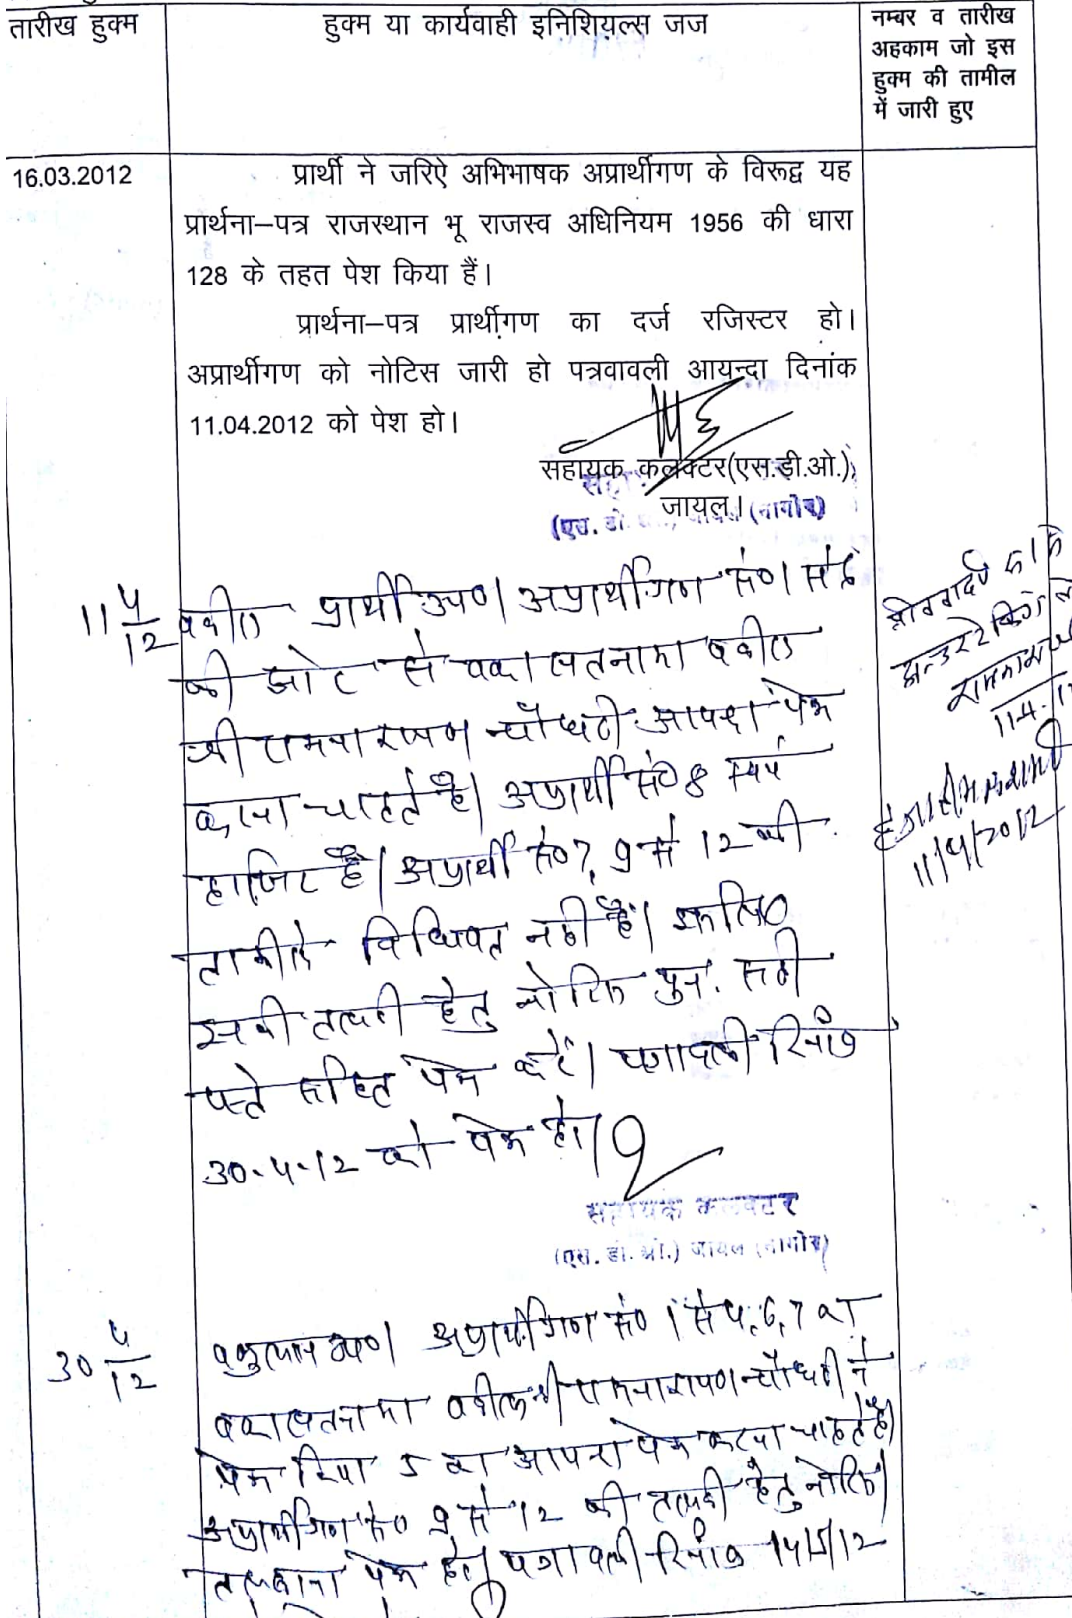 तारीख हुक्म
हुक्म या कार्यवाही इनिशियल्स जज
नम्बर व तारीख
अहकाम जो इस
हुक्म की तामील
में जारी हुए
16.03.2012
प्रार्थी ने जरिऐ अभिभाषक अप्रार्थीगण के विरूद्व यह
प्रार्थना–पत्र राजस्थान भू राजस्व अधिनियम 1956 की धारा
128 के तहत पेश किया हैं।
प्रार्थना–पत्र प्रार्थीगण का दर्ज रजिस्टर हो।
अप्रार्थीगण को नोटिस जारी हो पत्रवावली आयन्दा दिनांक
11.04.2012 को पेश हो।
सहायक कलक्टर(एस.डी.ओ.),
जायल।
(एस. डी. जायल (नागौर)
11 4/12 वकील प्रार्थी उप0। अप्रार्थीगण सं0 1 से
की ओर से वकालतनामा वकील
श्री रामनारायण चौधरी आयन्दा पेश
करना चाहते है। अप्रार्थी सं0 8 स्वयं
हाजिर है। अप्रार्थी सं0 7, 9 से 12 की
तामील विधिवत नहीं है। इसलिए
तलबी हेतु नोटिस पुनः सही
पते सहित पेश करें। पत्रावली दिनांक
30-4-12 को पेश हो।
सहायक कलक्टर
(एस. डी. ओ.) जायल (नागौर)
11/4/2012
30 4/12 उप0। अप्रार्थीगण सं0 1 से 4, 6, 7 का
वकालतनामा वकील श्री रामनारायण चौधरी ने
पेश किया 5 का आयन्दा पेश करना चाहते है।
अप्रार्थीगण सं0 9 से 12 की तलबी हेतु नोटिस
तलबाना पेश हो। पत्रावली दिनांक 14/5/12